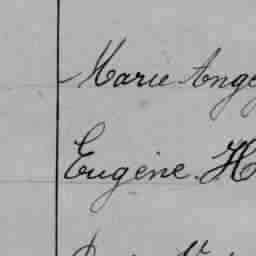 Marie Ange
Eugène H